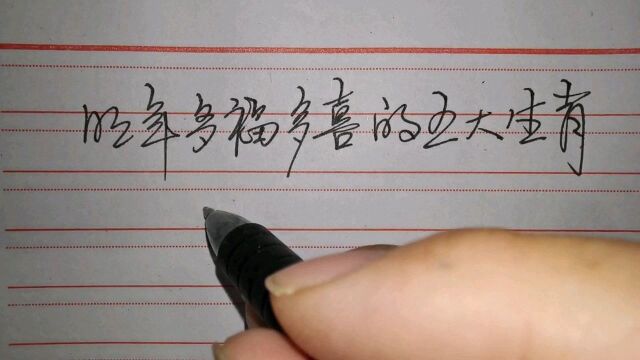 旺年多福多喜的五大生肖